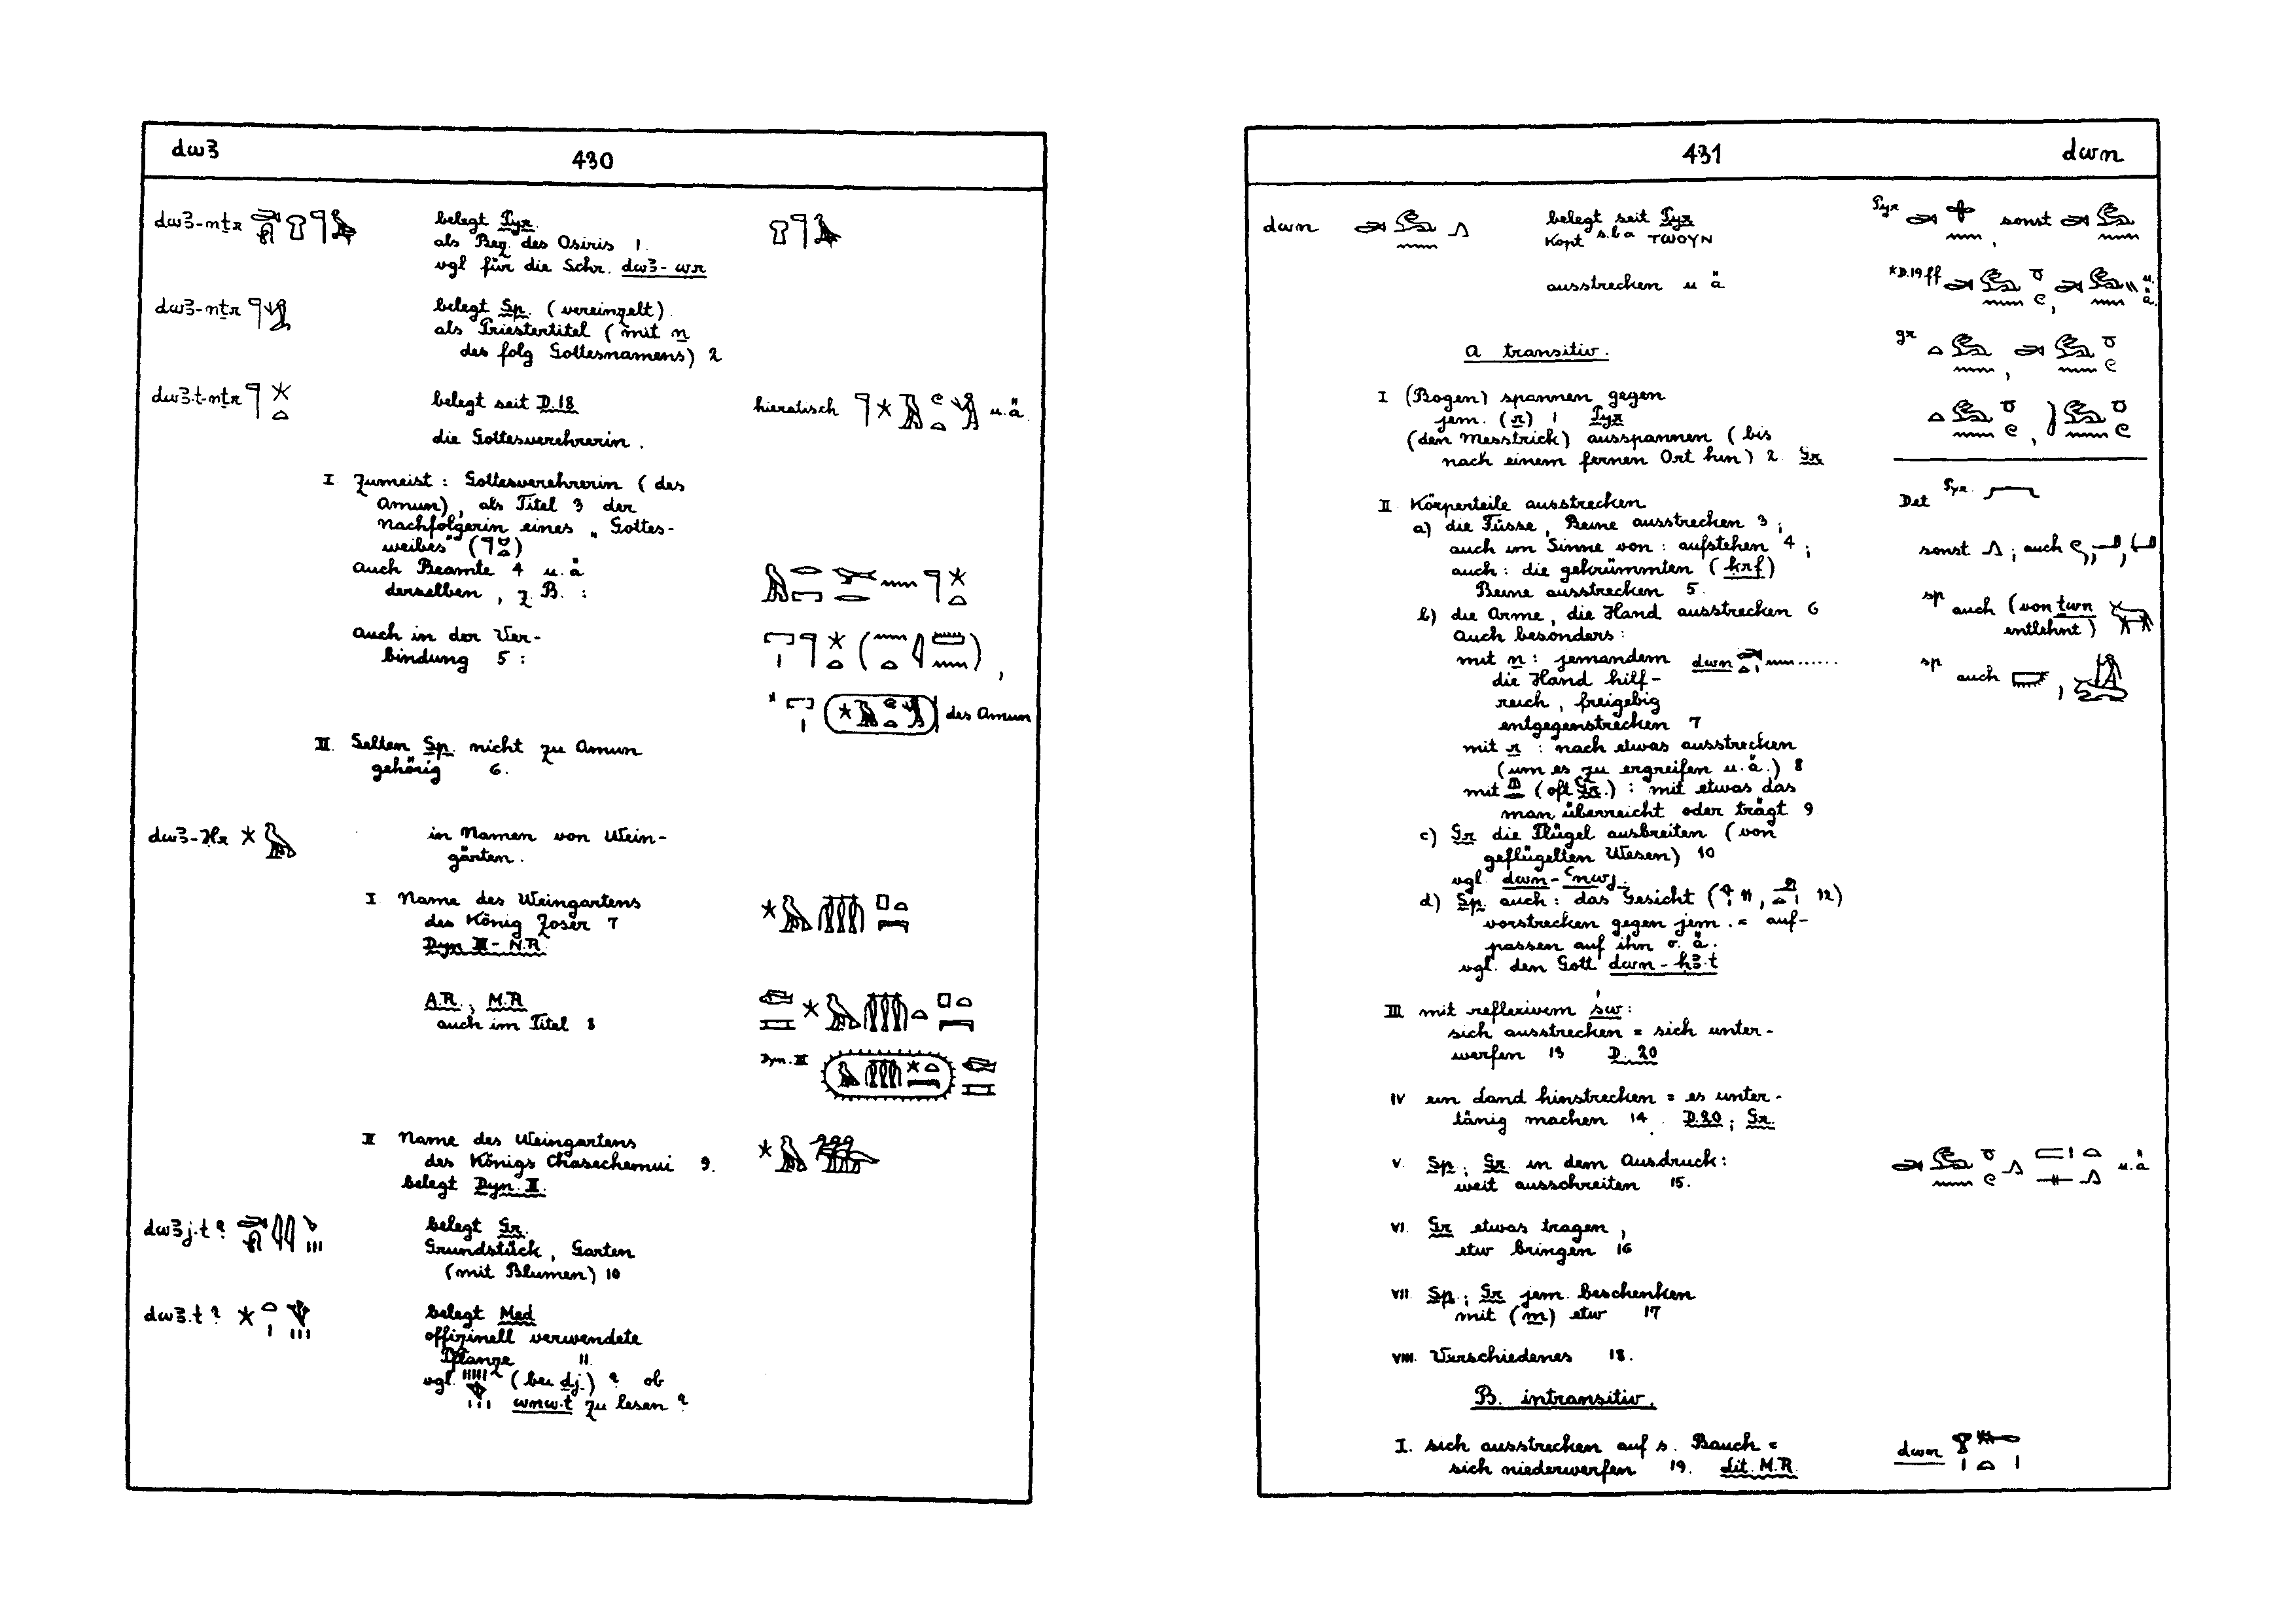 dwꜣ 430
dwꜣ-nṯr belegt Pyr.
als Bez. des Osiris 1.
vgl für die Schr. dwꜣ-wr
dwꜣ-nṯr belegt Sp. (vereinzelt).
als Priestertitel (mit n
des folg Gottesnamens) 2
dwꜣ.t-nṯr belegt seit D.18 hieratisch u.ä.
die Gottesverehrerin.
I Zumeist: Gottesverehrerin (des
Amun), als Titel 3 der
Nachfolgerin eines „Gottes-
weibes" ( )
auch Beamte 4 u.ä
derselben, z B. :
auch in der Ver-
bindung 5 :
des Amun
II. Selten Sp. nicht zu Amun
gehörig 6.
dwꜣ-Ḥr in Namen von Wein-
gärten.
I Name des Weingartens
des König Zoser 7
Dyn III - N.R.
A.R., M.R
auch im Titel 8
Dyn. III
II Name des Weingartens
des Königs Chasechemui 9.
belegt Dyn. II.
dwꜣj.t ? belegt Gr.
Grundstück, Garten
(mit Blumen) 10
dwꜣ.t ? belegt Med
offizinell verwendete
Pflanze 11.
vgl. (bei dj.) ? ob
wnw.t zu lesen ?
431 dwn
dwn belegt seit Pyr
Kopt s.b a ΤΩΟΥΝ
ausstrecken u ä
Pyr , sonst
*D.19ff , u. ä.
gr ,
,
A transitiv.
I (Bogen) spannen gegen
jem. (r) 1 Pyr
(den Messtrick) ausspannen (bis
nach einem fernen Ort hin) 2 Gr
Det Pyr.
sonst ; auch , ,
sp auch (von twn
entlehnt)
sp auch ,
II Körperteile ausstrecken
a) die Füsse, Beine ausstrecken 3;
auch im Sinne von: aufstehen 4;
auch: die gekrümmten (ḳrf)
Beine ausstrecken 5.
b) die Arme, die Hand ausstrecken 6
Auch besonders:
mit n: jemandem dwn ......
die Hand hilf-
reich, freigebig
entgegenstrecken 7
mit r : nach etwas ausstrecken
(um es zu ergreifen u.ä.) 8
mit (oft Gr.) : mit etwas das
man überreicht oder trägt 9
c) Gr die Flügel ausbreiten (von
geflügelten Wesen) 10
vgl. dwn-ꜥnwj.
d) Sp. auch: das Gesicht ( 11, 12)
vorstrecken gegen jem. = auf-
passen auf ihn o. ä.
vgl. den Gott dwn-ḥꜣ.t
III mit reflexivem św:
sich ausstrecken = sich unter-
werfen 13 D. 20
IV ein Land hinstrecken = es unter-
tänig machen 14. D.20; Gr.
V. Sp; Gr. in dem Ausdruck: u.ä
weit ausschreiten 15.
VI. Gr etwas tragen,
etw bringen 16
VII. Sp.; Gr jem beschenken
mit (m) etw 17
VIII. Verschiedenes 18.
B. intransitiv.
I. sich ausstrecken auf s. Bauch = dwn
sich niederwerfen 19. Lit. M.R.